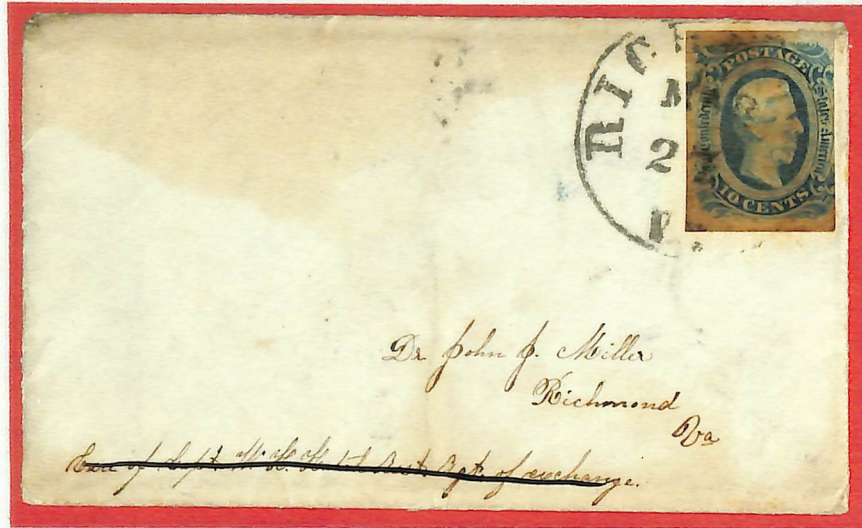 RIC
2
POSTAGE
Confederate
States America
10 CENTS
Dr John J. Miller
Richmond
Va
Care of Capt. W. H. Asst. Agt. of exchange.